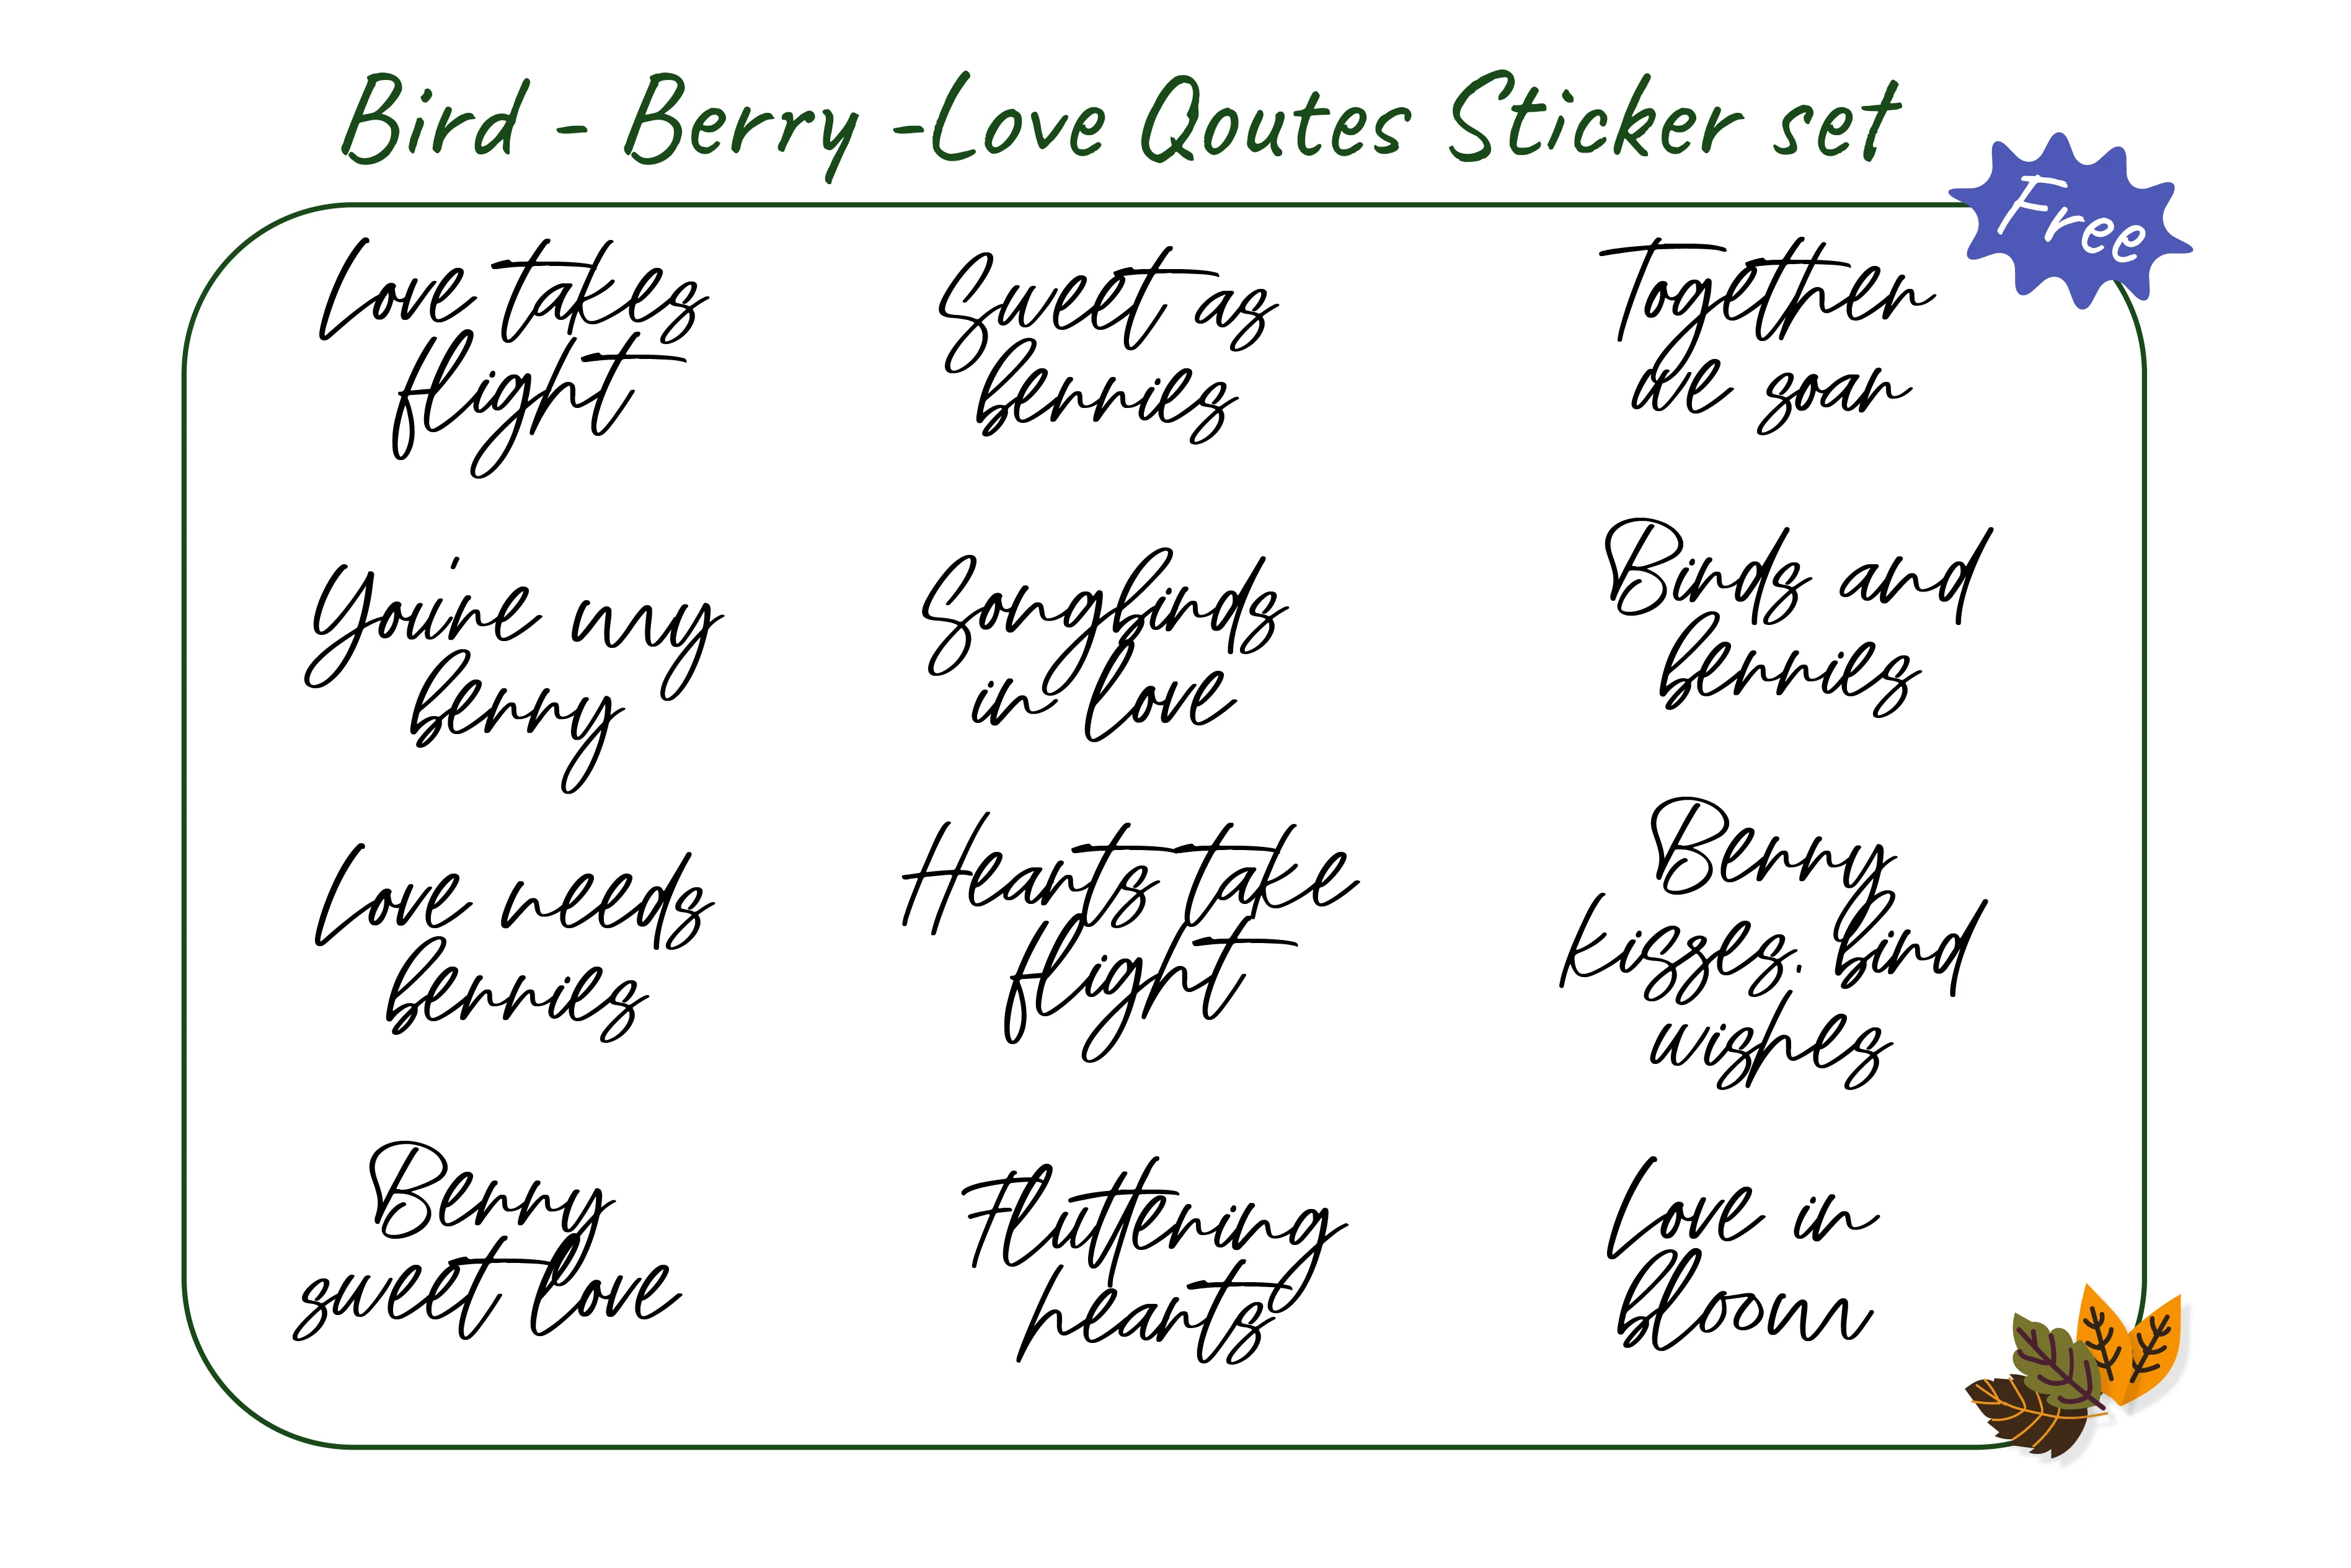 Bird - Berry -Love Qoutes Sticker set
Free
Love takes
flight
Sweet as
berries
Together
we soar
You're my
berry
Songbirds
in love
Birds and
berries
Love needs
berries
Hearts take
flight
Berry
kisses, bird
wishes
Berry
sweet love
Fluttering
hearts
Love in
bloom